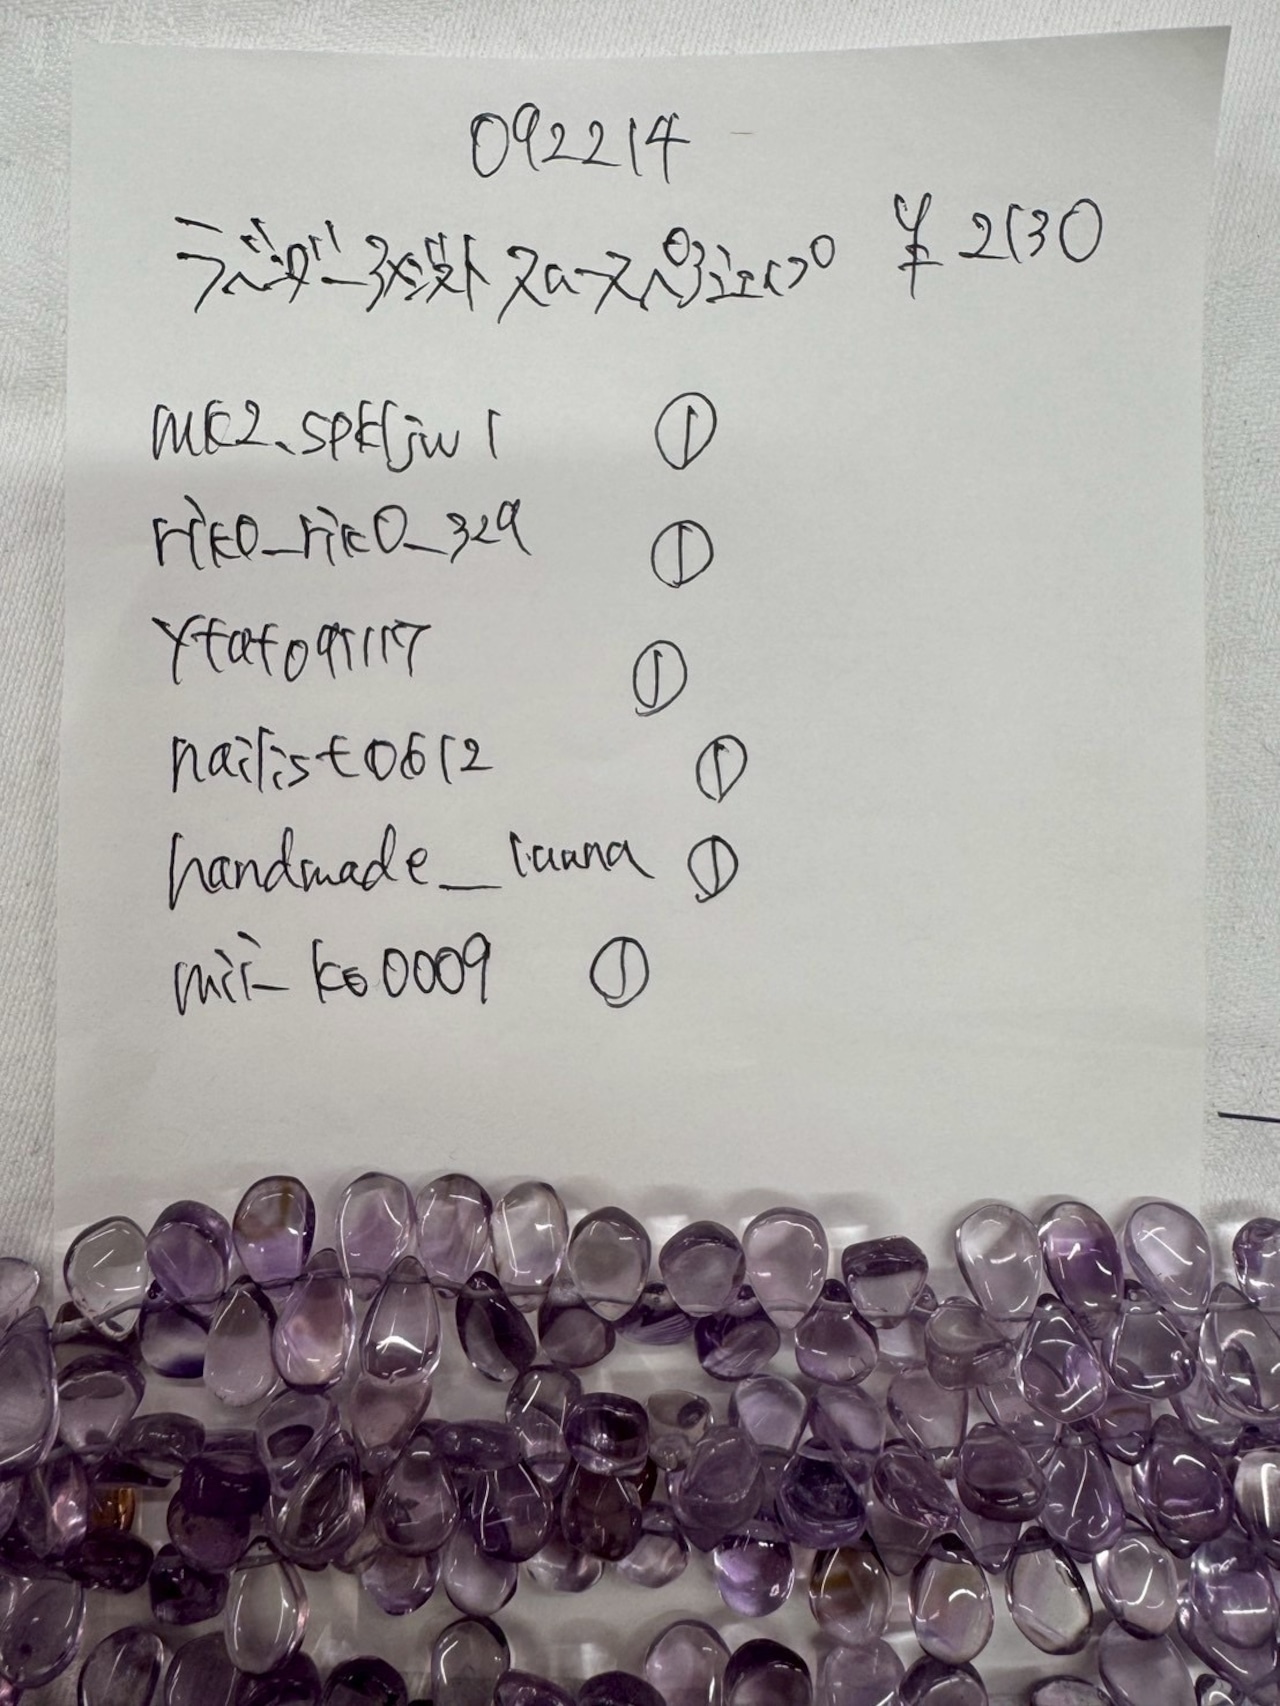 092214
ラベンダーアメジスト スムースペアシェイプ ¥2130
mk2.spkljw1 ①
riko_riko_329 ①
ytat091117 ①
nailist0612 ①
handmade_ ①
mii_ko0009 ①